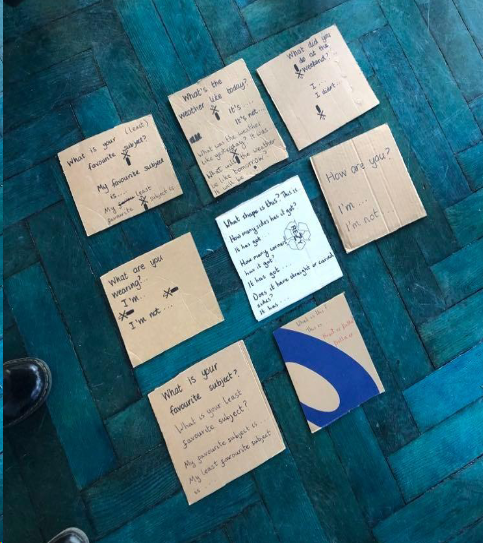 What did you
do at the
weekend?
I...
I didn't...
What's the
weather like today?
It's...
It's not...
What was the weather
like yesterday? It was
What will the weather
be like tomorrow?
It will be
What is your (least)
favourite subject?
My favourite subject
is....
My least
favourite subject is
How are you?
I'm...
I'm not...
What shape is this? This is
How many sides has it got?
It has got
How many corners
has it got?
It has got...
Does it have straight or curved
sides?
It has....
What are you
wearing?
I'm...
I'm not...
What is this?
This is
What is your
favourite subject?
What is your least
favourite subject?
My favourite subject is
My least favourite subject
is ...